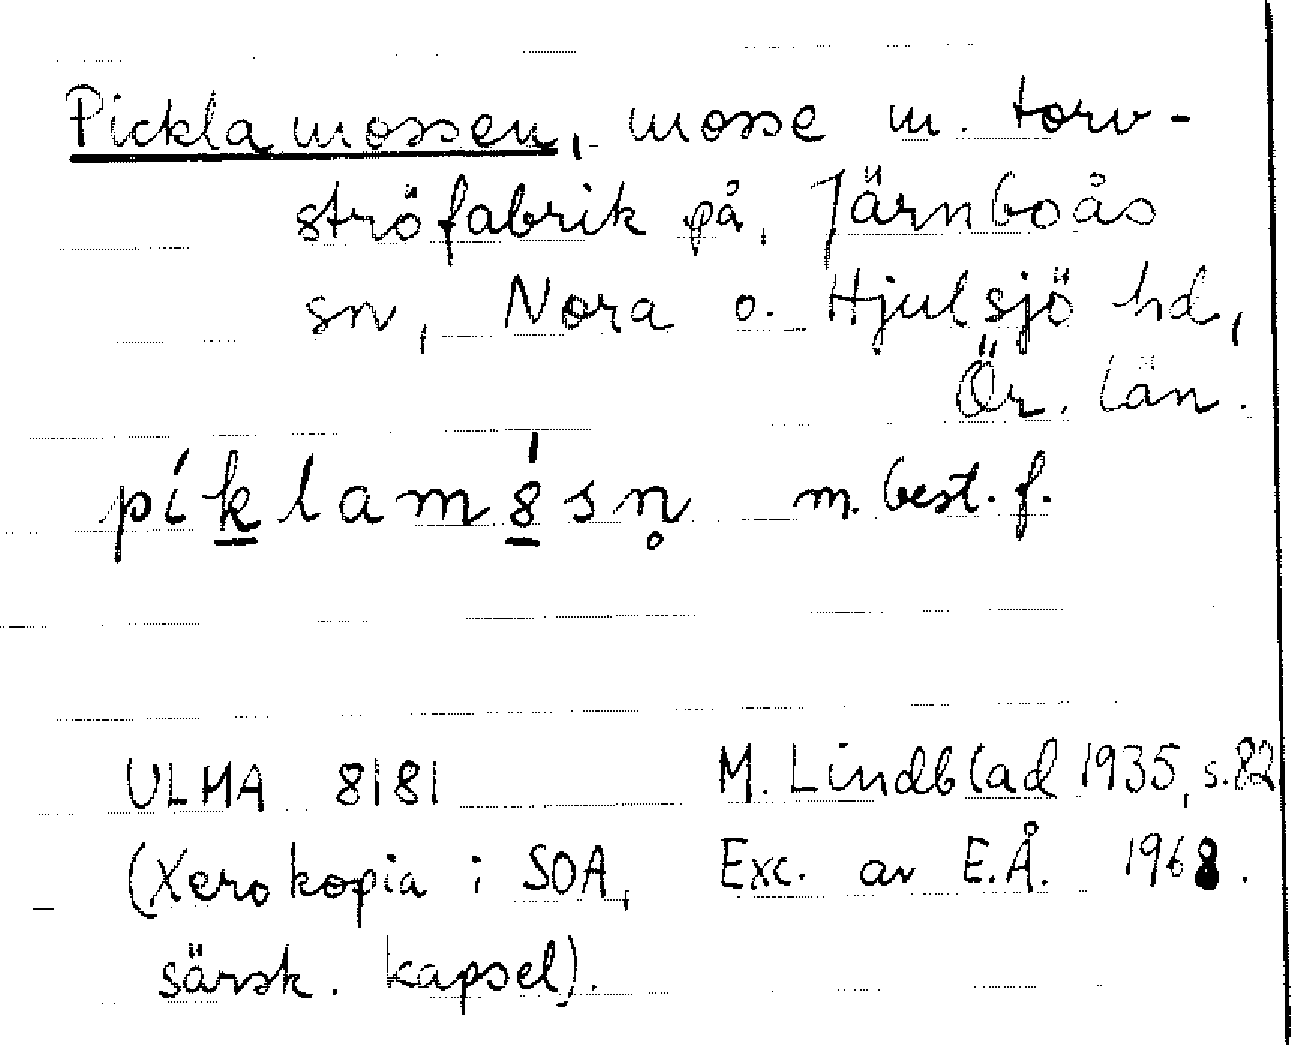 Picklamossen, mosse m. torv-
ströfabrik på, Järnboås
sn, Nora o. Hjulsjö hd,
Ör. län.
píklam8́sn̥ m. best. f.
ULMA 8181 M. Lindblad 1935, s. 82
(Xerokopia i SOA, Exc. av E.Å. 1968.
särsk. kapsel).